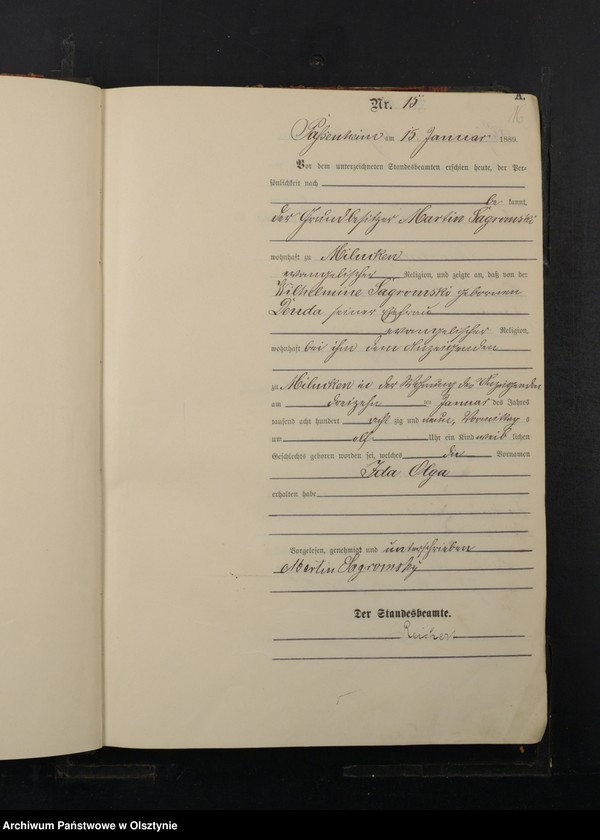 A.
Nr. 15
Passenheim am 15. Januar 1889.
Vor dem unterzeichneten Standesbeamten erschien heute, der Per-
sönlichkeit nach
be kannt,
der Grundbesitzer Martin Sagromski
wohnhaft zu Milucken
evangelischer Religion, und zeigte an, daß von der
Wilhelmine Sagromski geborenen
Donda seiner Ehefrau
evangelischer Religion,
wohnhaft bei ihm dem Anzeigenden
zu Milucken in der Wohnung des Anzeigenden
am dreizehn ten Januar des Jahres
tausend acht hundert acht zig und neun, Vormittag s
um elf Uhr ein Kind weib lichen
Geschlechts geboren worden sei, welches die Vornamen
Ida Olga
erhalten habe
Vorgelesen, genehmigt und unterschrieben
Martin Sagromsky
Der Standesbeamte.
Archiwum Państwowe w Olsztynie